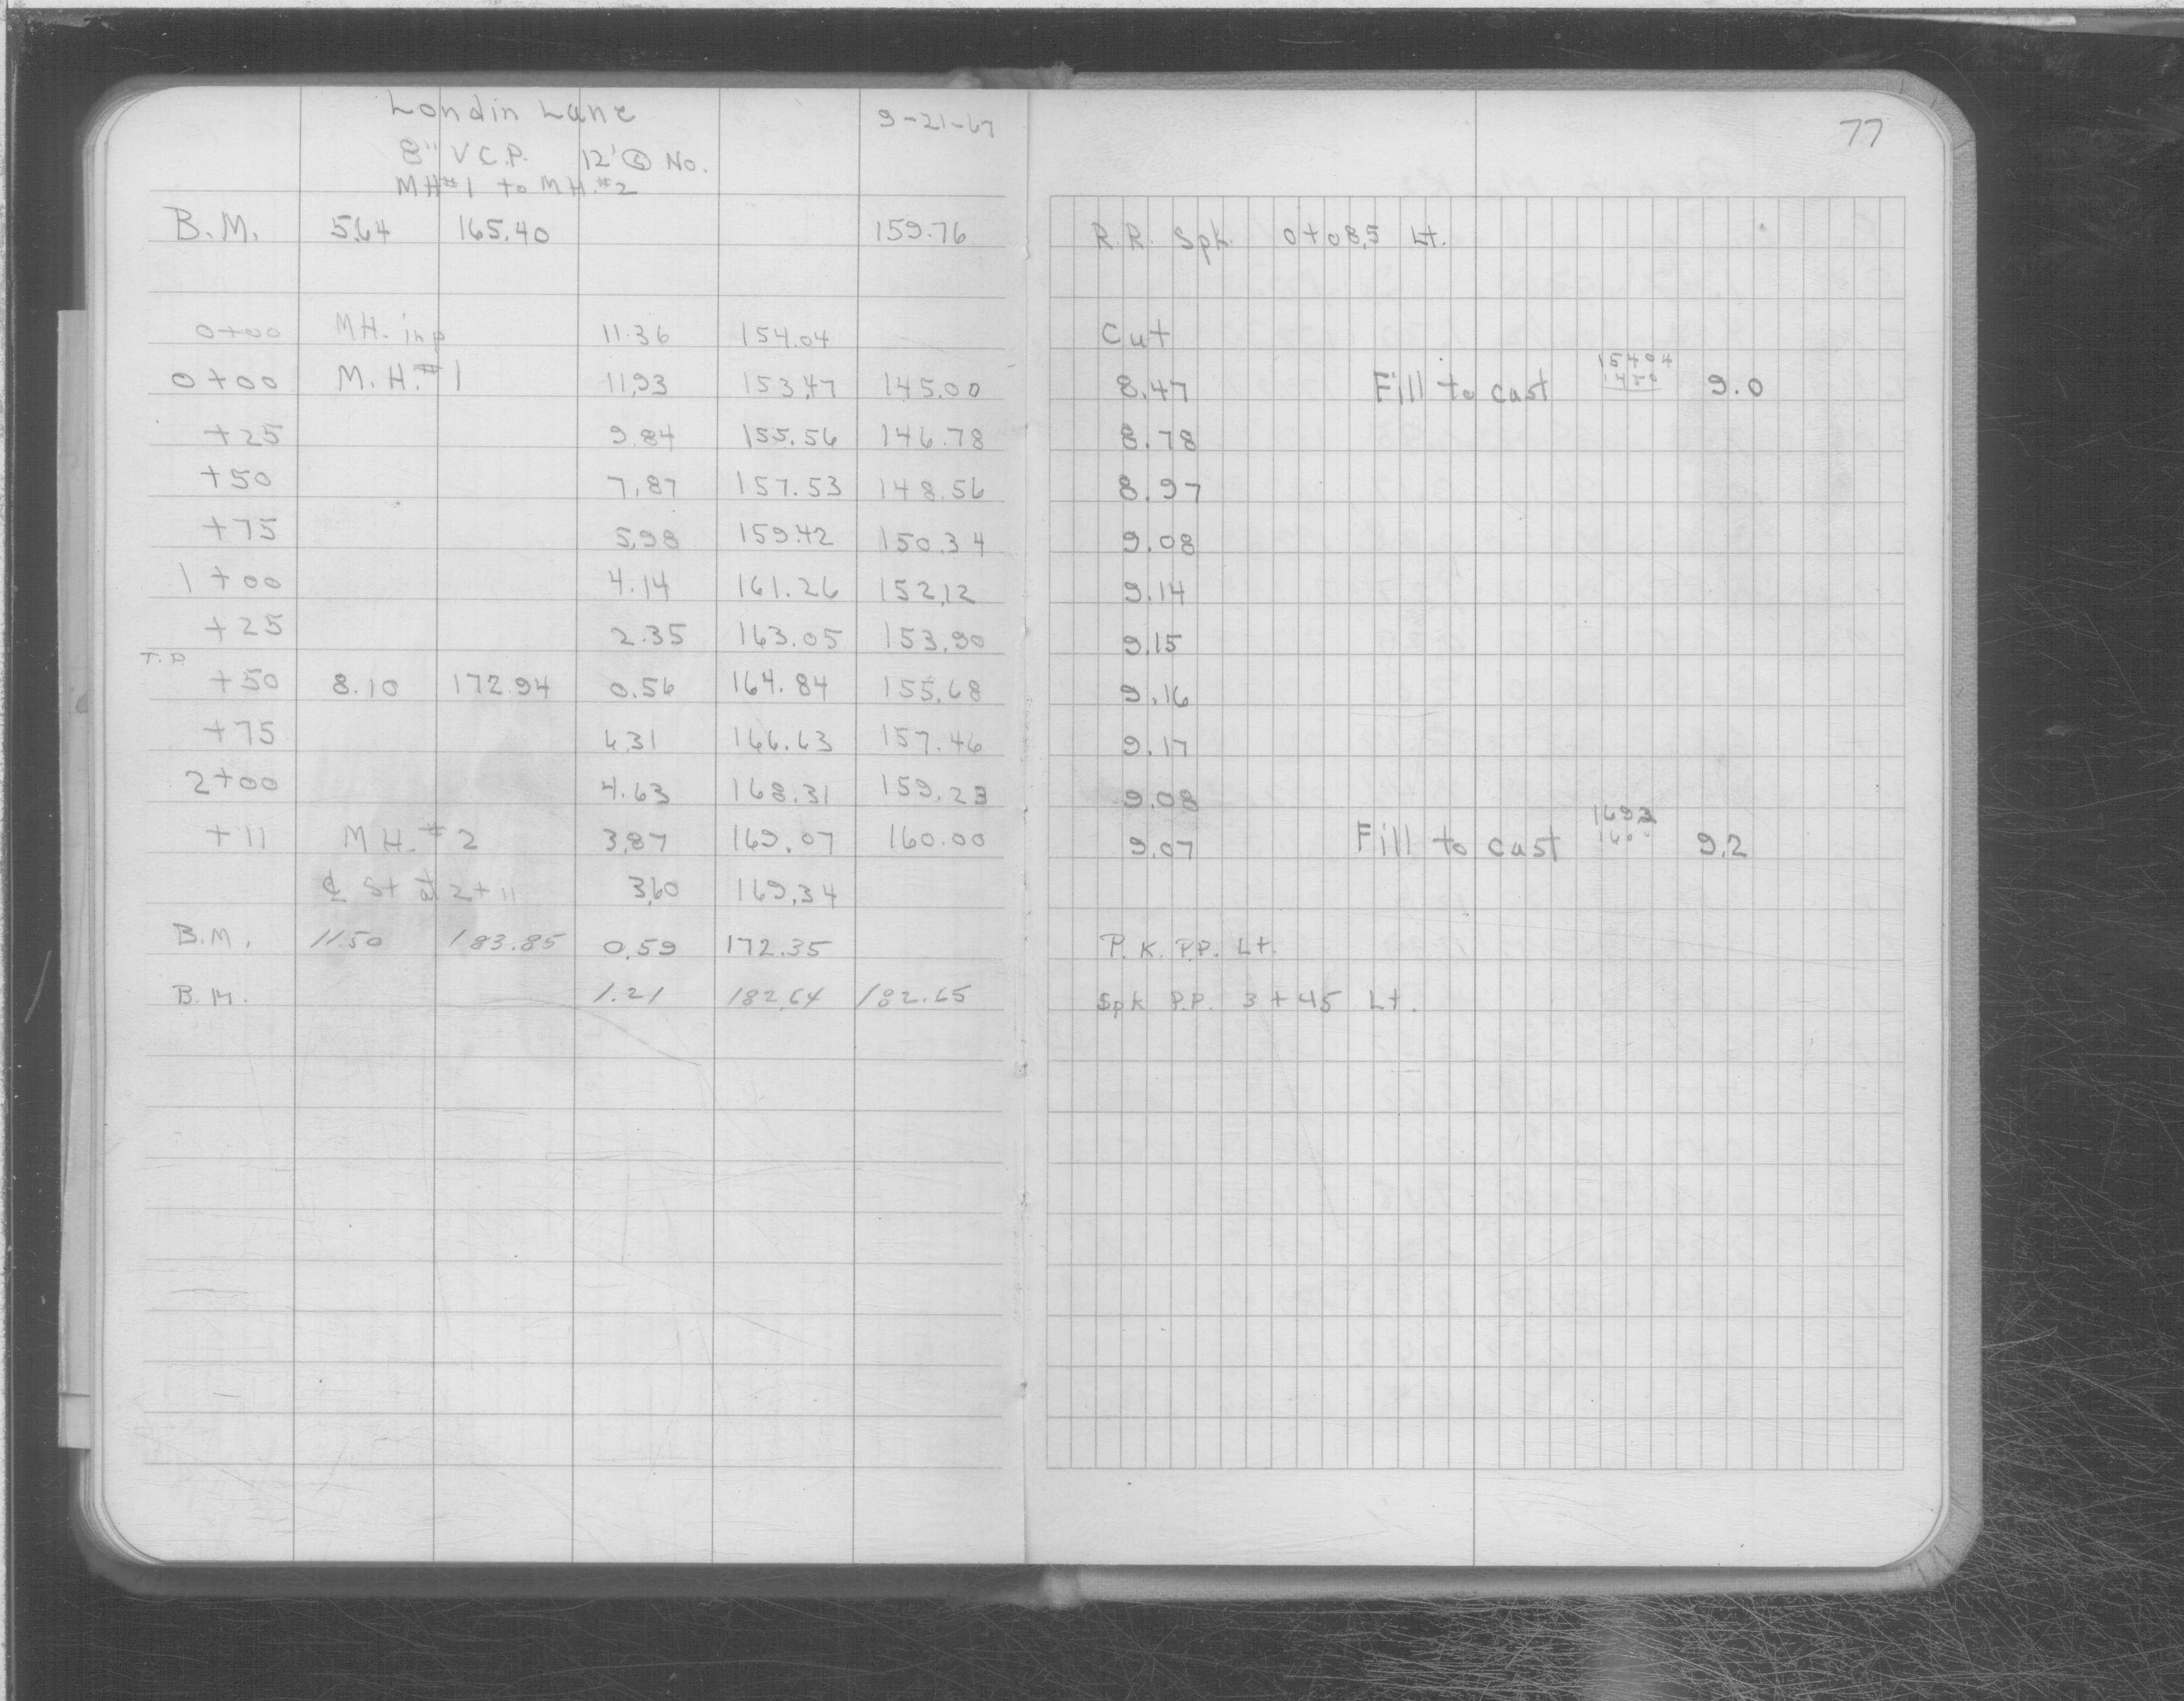 Londin Lane 9-21-67
8" V.C.P. 12' ℄ No.
MH#1 to MH.#2
77
B.M. 5.64 165.40 159.76 R.R. Spk. 0+08.5 Lt.
0+00 MH. inp 11.36 154.04 Cut
15404
0+00 M.H.#1 11.93 153.47 145.00 8.47 Fill to cast 1450 9.0
+25 9.84 155.56 146.78 8.78
+50 7.87 157.53 148.56 8.97
+75 5.98 159.42 150.34 9.08
1+00 4.14 161.26 152.12 9.14
+25 2.35 163.05 153.90 9.15
T.P.
+50 8.10 172.94 0.56 164.84 155.68 9.16
+75 6.31 166.63 157.46 9.17
2+00 4.63 168.31 159.23 9.08
+11 M.H.#2 3.87 169.07 160.00 9.07 Fill to cast 1600 9.2
℄ St at 2+11 3.60 169.34
B.M. 11.50 183.85 0.59 172.35 P.K. P.P. Lt.
B.M. 1.21 182.64 182.65 Spk P.P. 3+45 Lt.